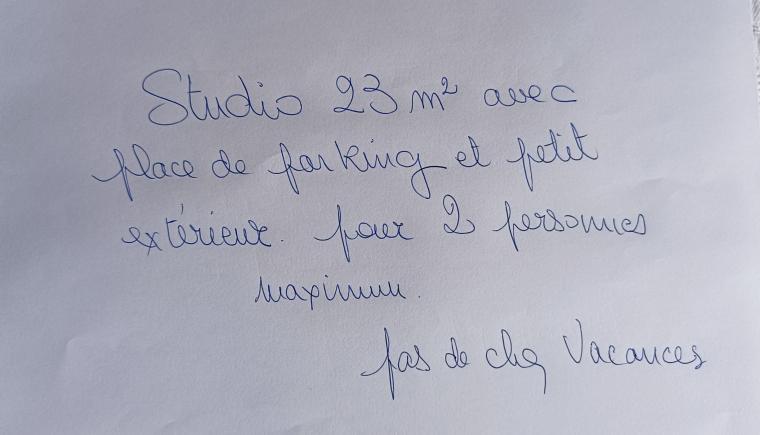 Studio 23 m² avec
place de parking et petit
extérieur. pour 2 personnes
maximum.
pas de chq Vacances